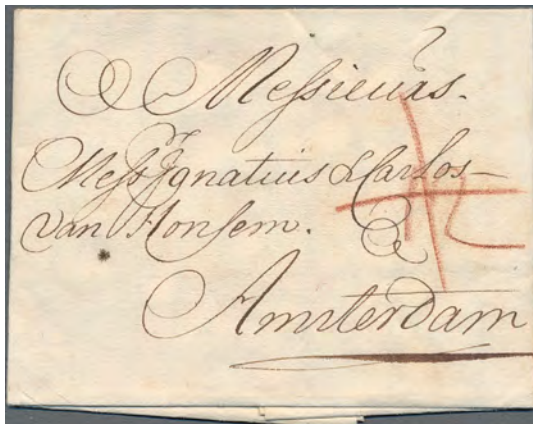 A Messieurs.
Messrs Ignatius & Carlos
van Honsem. a
Amsterdam